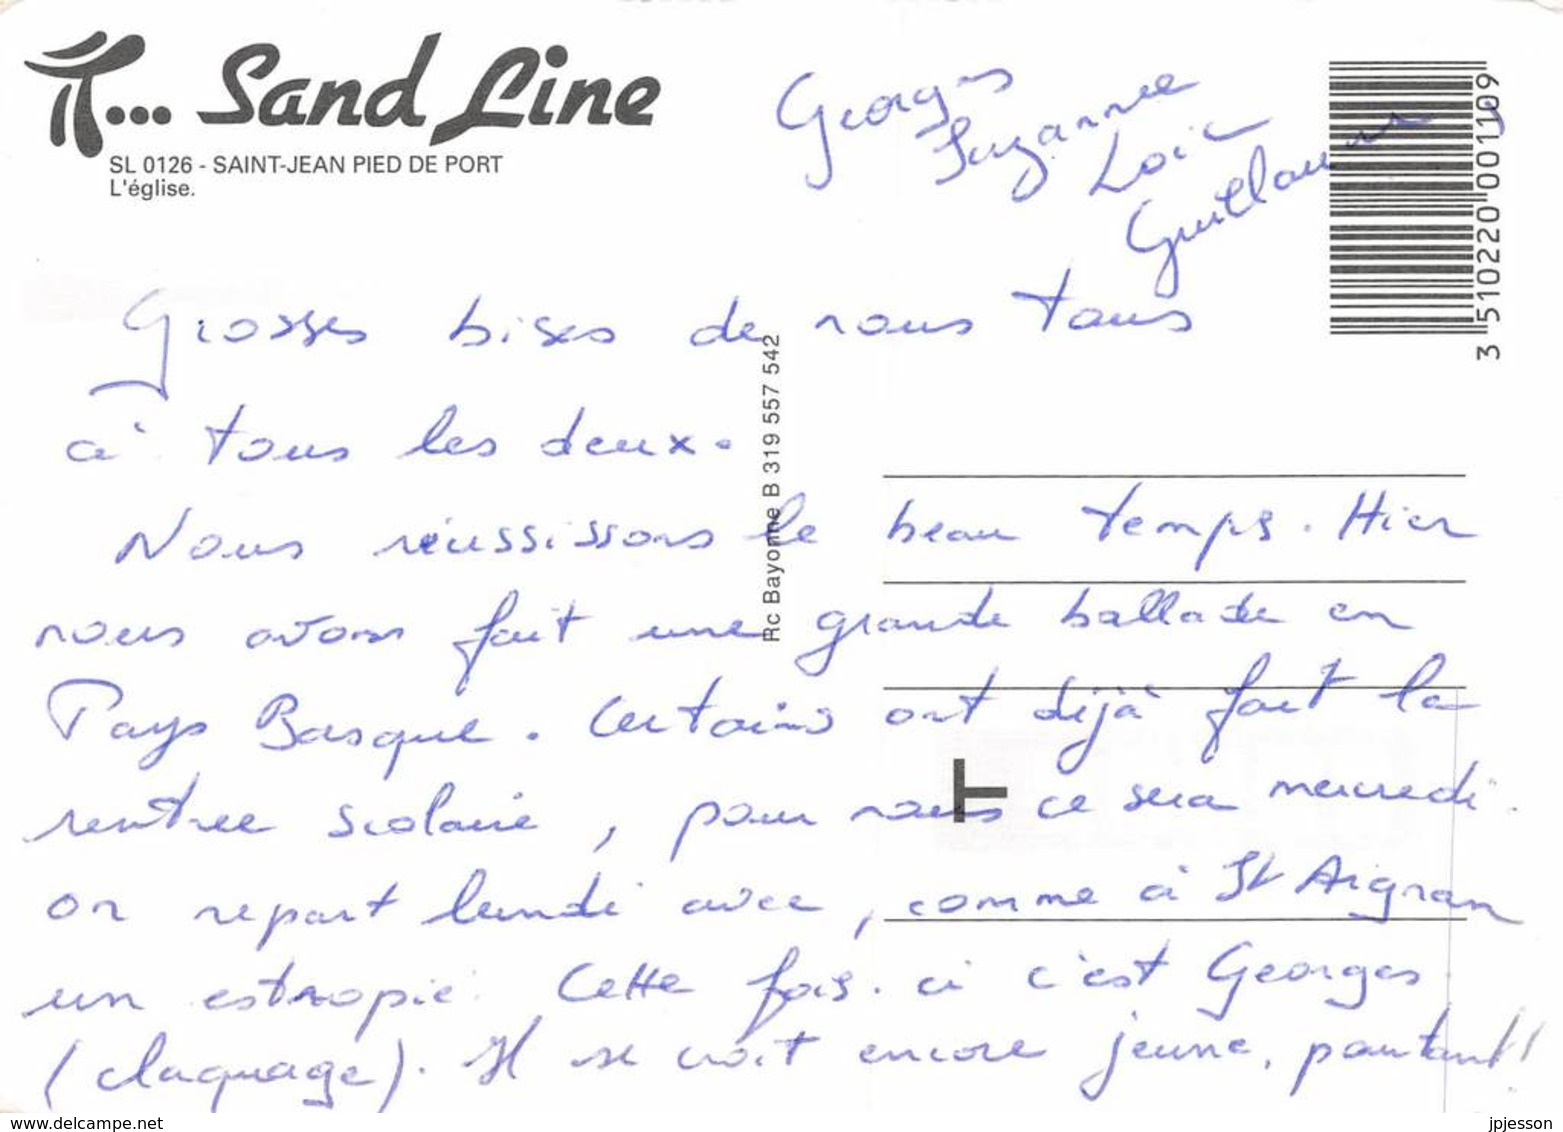 ... Sand Line
SL 0126 - SAINT-JEAN PIED DE PORT
L'église.
Georges
Suzanne
Loic
Guillaume
3 510220 001109
Grosses bises de nous tous
à tous les deux.
Nous réussissons le beau temps. Hier
nous avons fait une grande ballade en
Pays Basque. Certains ont déjà fait la
rentree scolaire, pour nous ce sera mercredi.
on repart lundi avec, comme à St Aignan
un estropié. Cette fois-ci c'est Georges
(claquage). Il se croit encore jeune, pourtant!!
Rc Bayonne B 319 557 542
T
www.delcampe.net
jpjesson